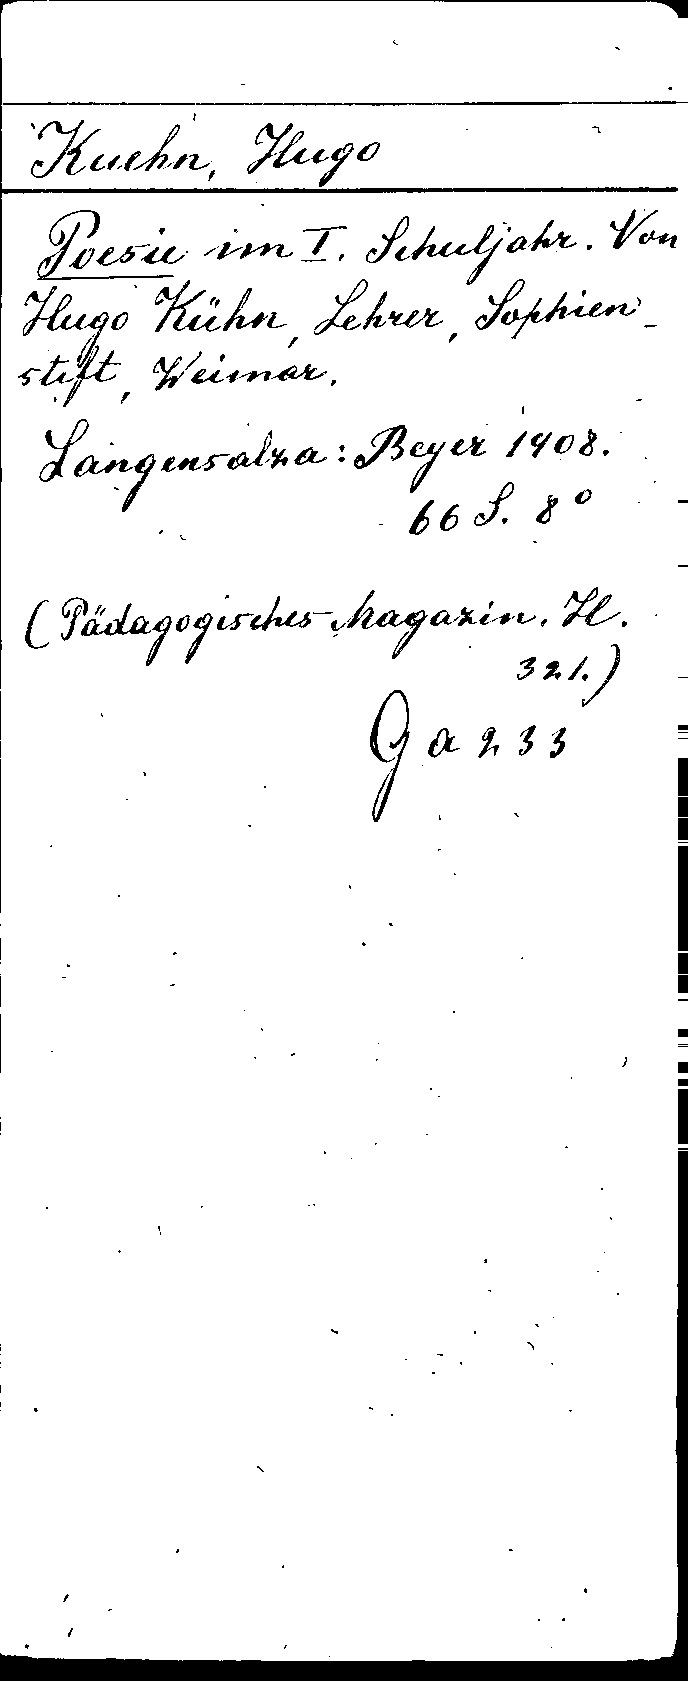 Kuehn, Hugo
Poesie im I. Schuljahr. Von
Hugo Kühn, Lehrer, Sophien-
stift, Weimar.
Langensalza: Beyer 1908.
66 S. 8°
(Pädagogisches Magazin. H.
321.)
Ga 233